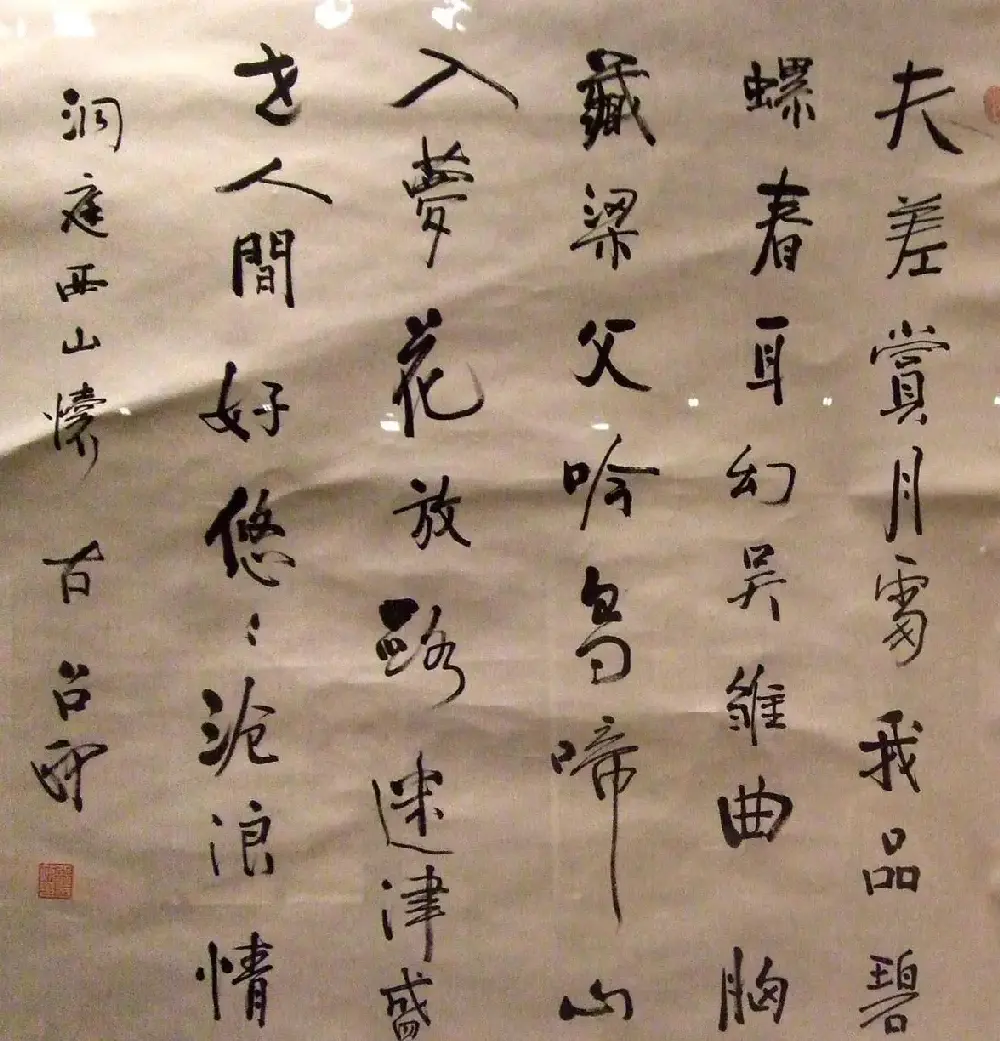 夫差賞月處我品碧
螺春耳幻吳雛曲胸
藏梁父吟鳥啼山
入夢花放路迷津盛
世人間好悠〻滄浪情
洞庭西山懷古